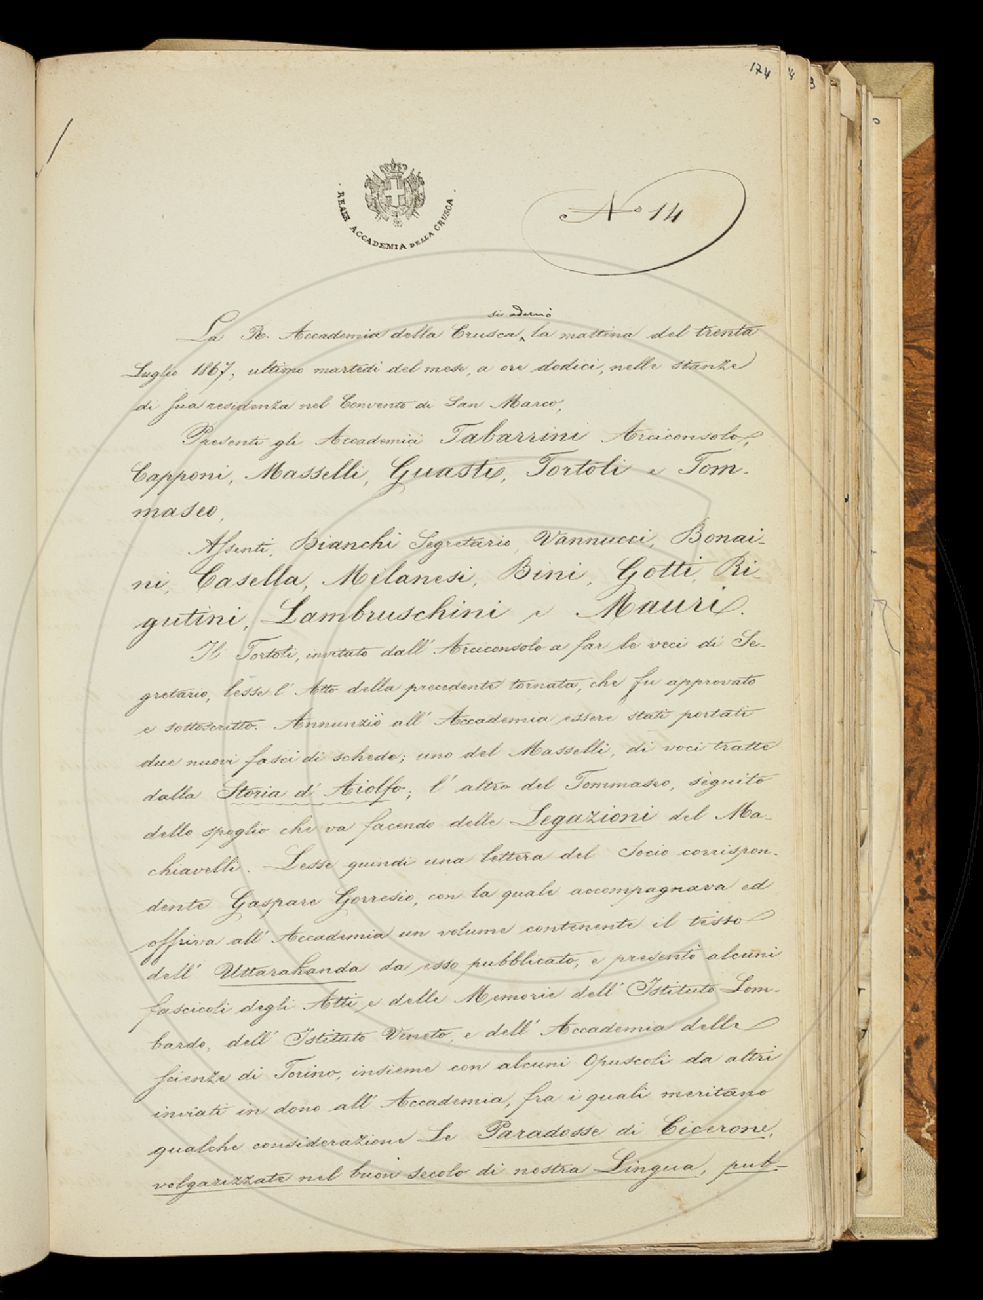 174
REALE ACCADEMIA DELLA CRUSCA
No 14
si adunò
La R. Accademia della Crusca, la mattina del trenta
Luglio 1867, ultimo martedì del mese, a ore dodici, nelle stanze
di sua residenza nel Convento di San Marco,
Presenti gli Accademici Tabarrini Arciconsolo,
Capponi, Masselli, Guasti, Tortoli e Tom-
maseo,
Assenti, Bianchi Segretario, Vannucci, Bonai-
ni, Casella, Milanesi, Bini, Gotti, Ri-
gutini, Lambruschini e Mauri.
Il Tortoli, invitato dall' Arciconsolo a far le veci di Se-
gretario, lesse l' Atto della precedente tornata, che fu approvato
e sottoscritto. Annunziò all' Accademia essere stati portati
due nuovi fasci di schede; uno del Masselli, di voci tratte
dalla Storia d' Aiolfo; l' altro del Tommaseo, seguito
dello spoglio che va facendo delle Legazioni del Ma-
chiavelli. Lesse quindi una lettera del Socio corrispon-
dente Gaspare Gorresio, con la quale accompagnava ed
offriva all' Accademia un volume contenente il testo
dell' Uttarakanda da esso pubblicato, e presentò alcuni
fascicoli degli Atti e delle Memorie dell' Istituto Lom-
bardo, dell' Istituto Veneto, e dell' Accademia delle
Scienze di Torino, insieme con alcuni Opuscoli da altri
inviati in dono all' Accademia, fra i quali meritano
qualche considerazione Le Paradosse di Cicerone,
volgarizzate nel buon secolo di nostra Lingua, pub-